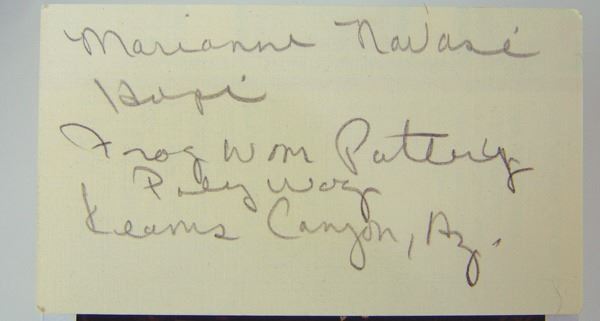 Marianne Navasé
Hopi
Frog Wom Pottery
Poley Way
Keams Canyon, Az.